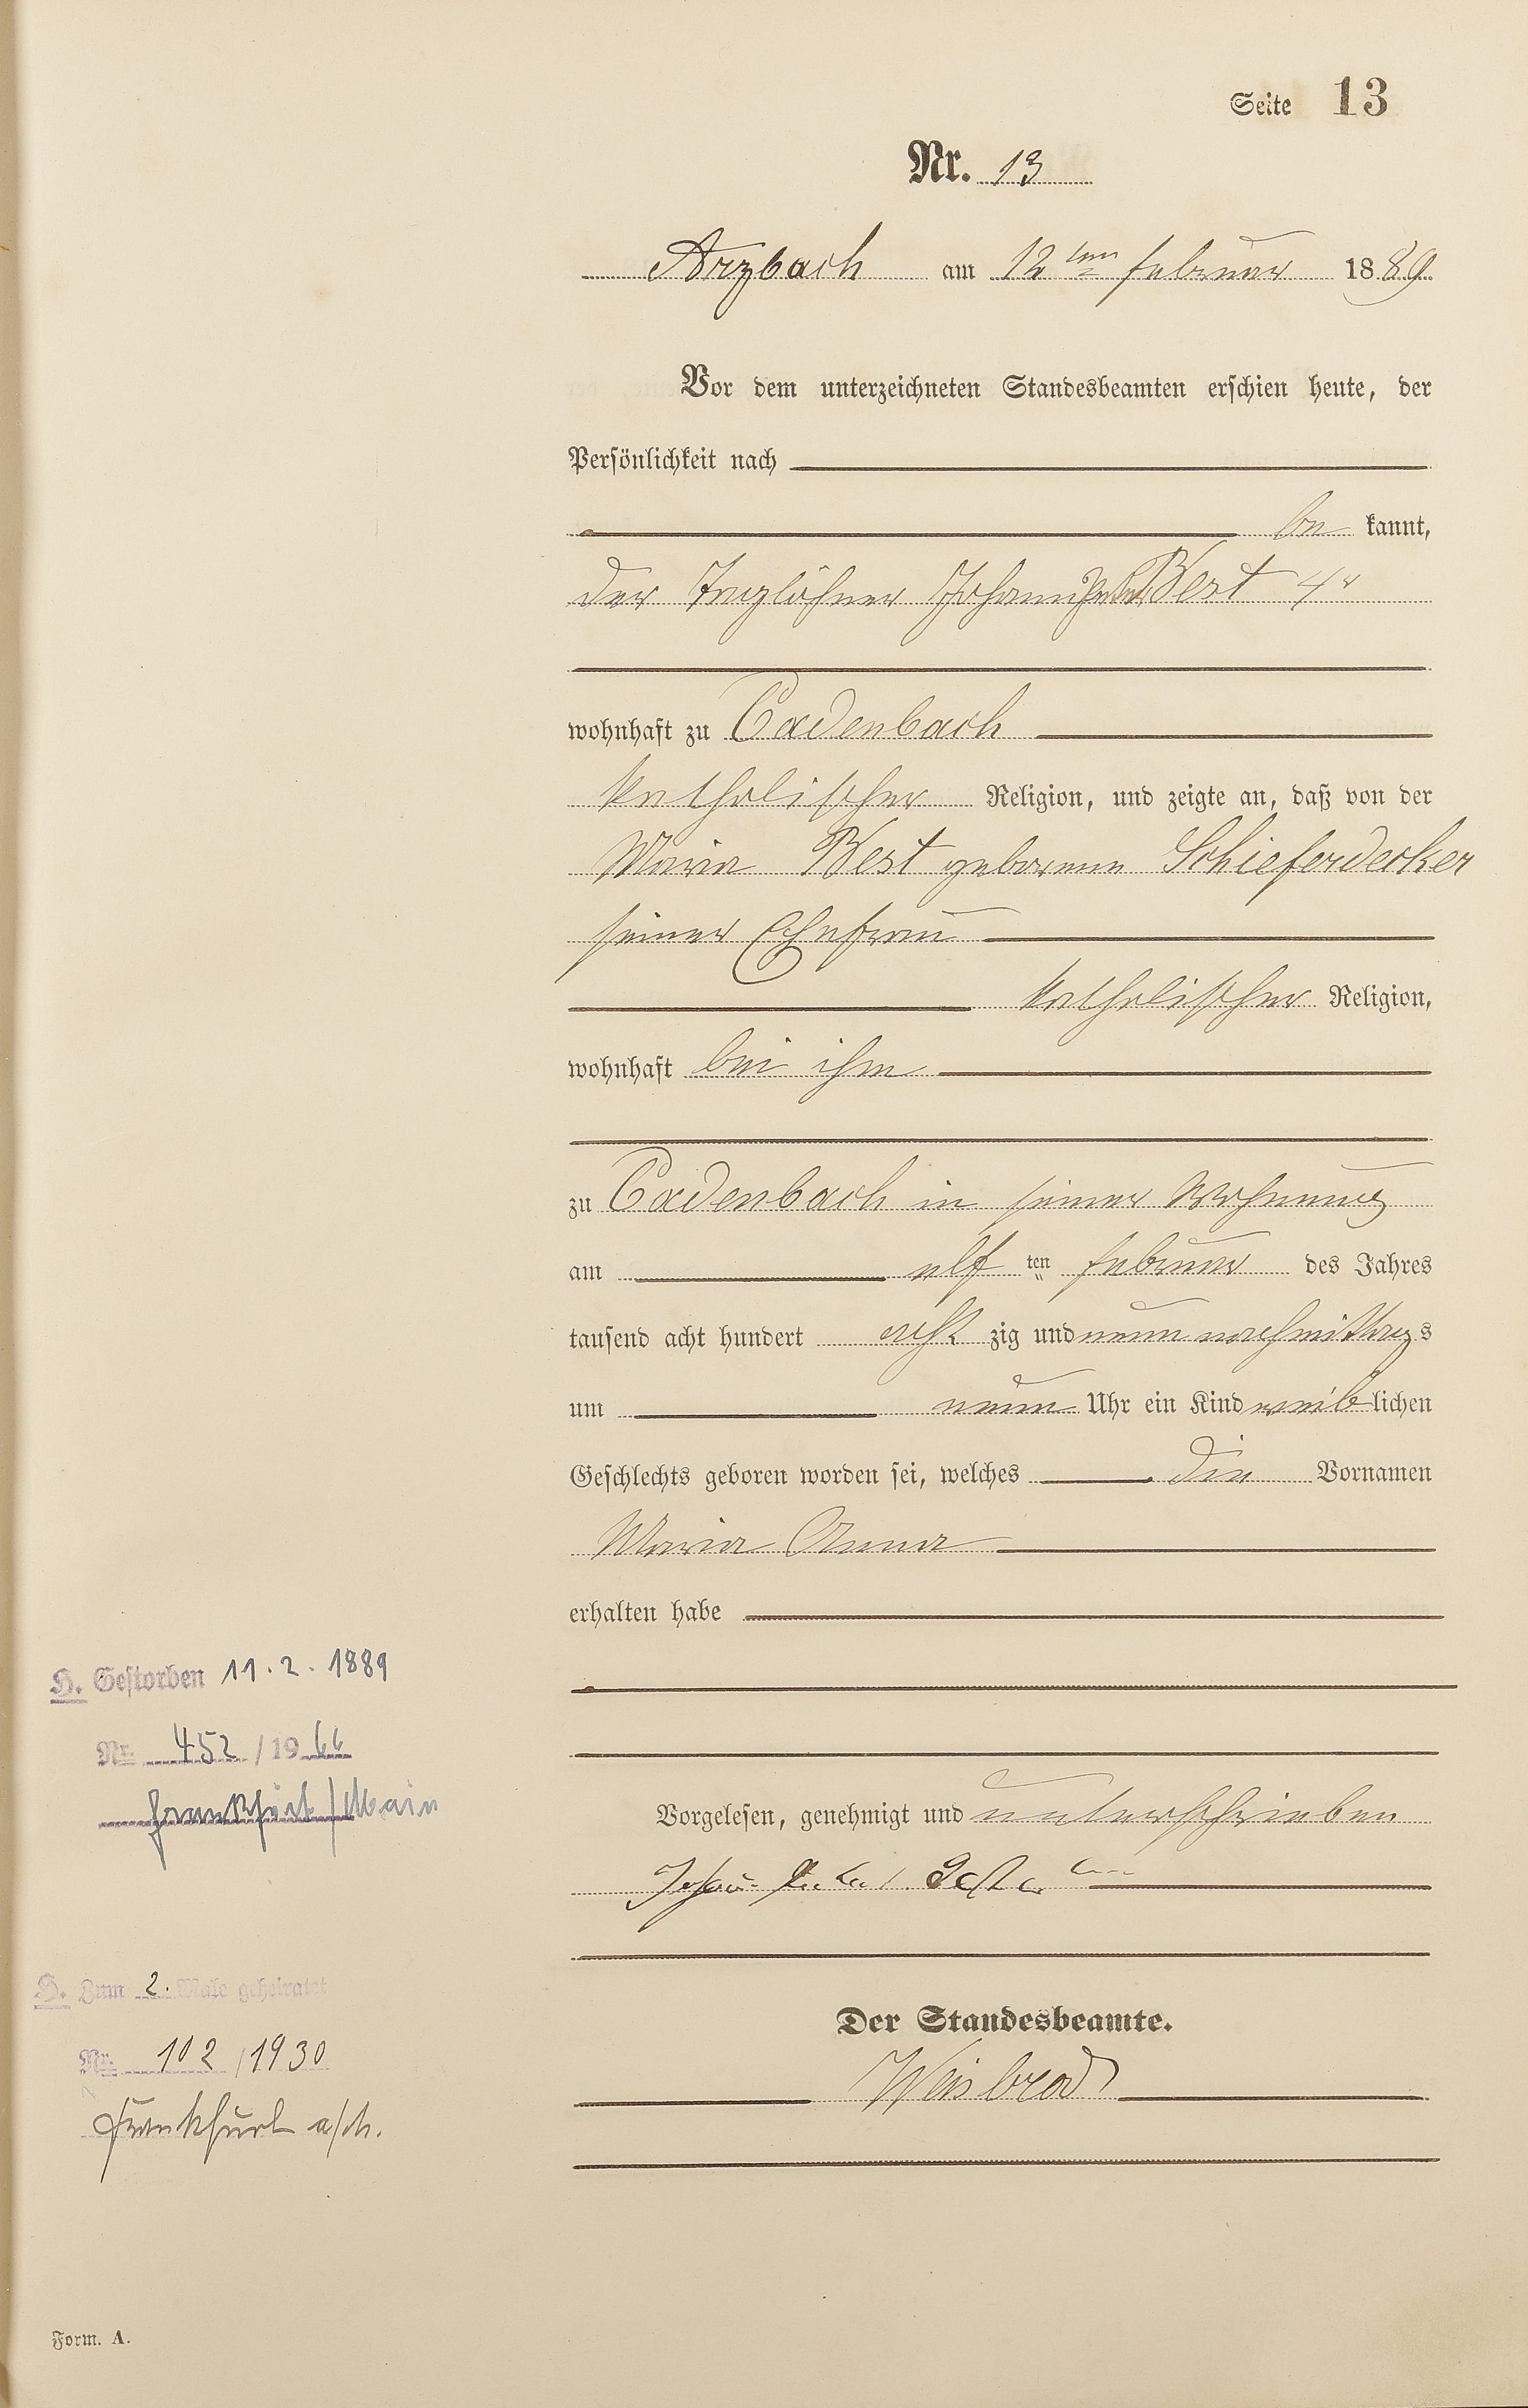 Seite 13
Nr. 13
Arzbach am 12ten Februar 1889.
Vor dem unterzeichneten Standesbeamten erschien heute, der
Persönlichkeit nach
be kannt,
der Taglöhner Johann Peter Best 4r
wohnhaft zu Cadenbach
katholischer Religion, und zeigte an, daß von der
Maria Best geborenen Schieferdecker
seiner Ehefrau
katholischer Religion,
wohnhaft bei ihm
zu Cadenbach in seiner Wohnung
am elf ten Februar des Jahres
tausend acht hundert acht zig und neun nachmittags
um neun Uhr ein Kind weiblichen
Geschlechts geboren worden sei, welches die Vornamen
Maria Anna
erhalten habe
H. Gestorben 11.2.1889
Nr. 452/1966
Frankfurt/Main
Vorgelesen, genehmigt und unterschrieben
Johann Peter Best
H. Zum 2. Male geheiratet
Nr. 102/1930
Frankfurt a/M.
Der Standesbeamte.
Weisbrod
Form. A.